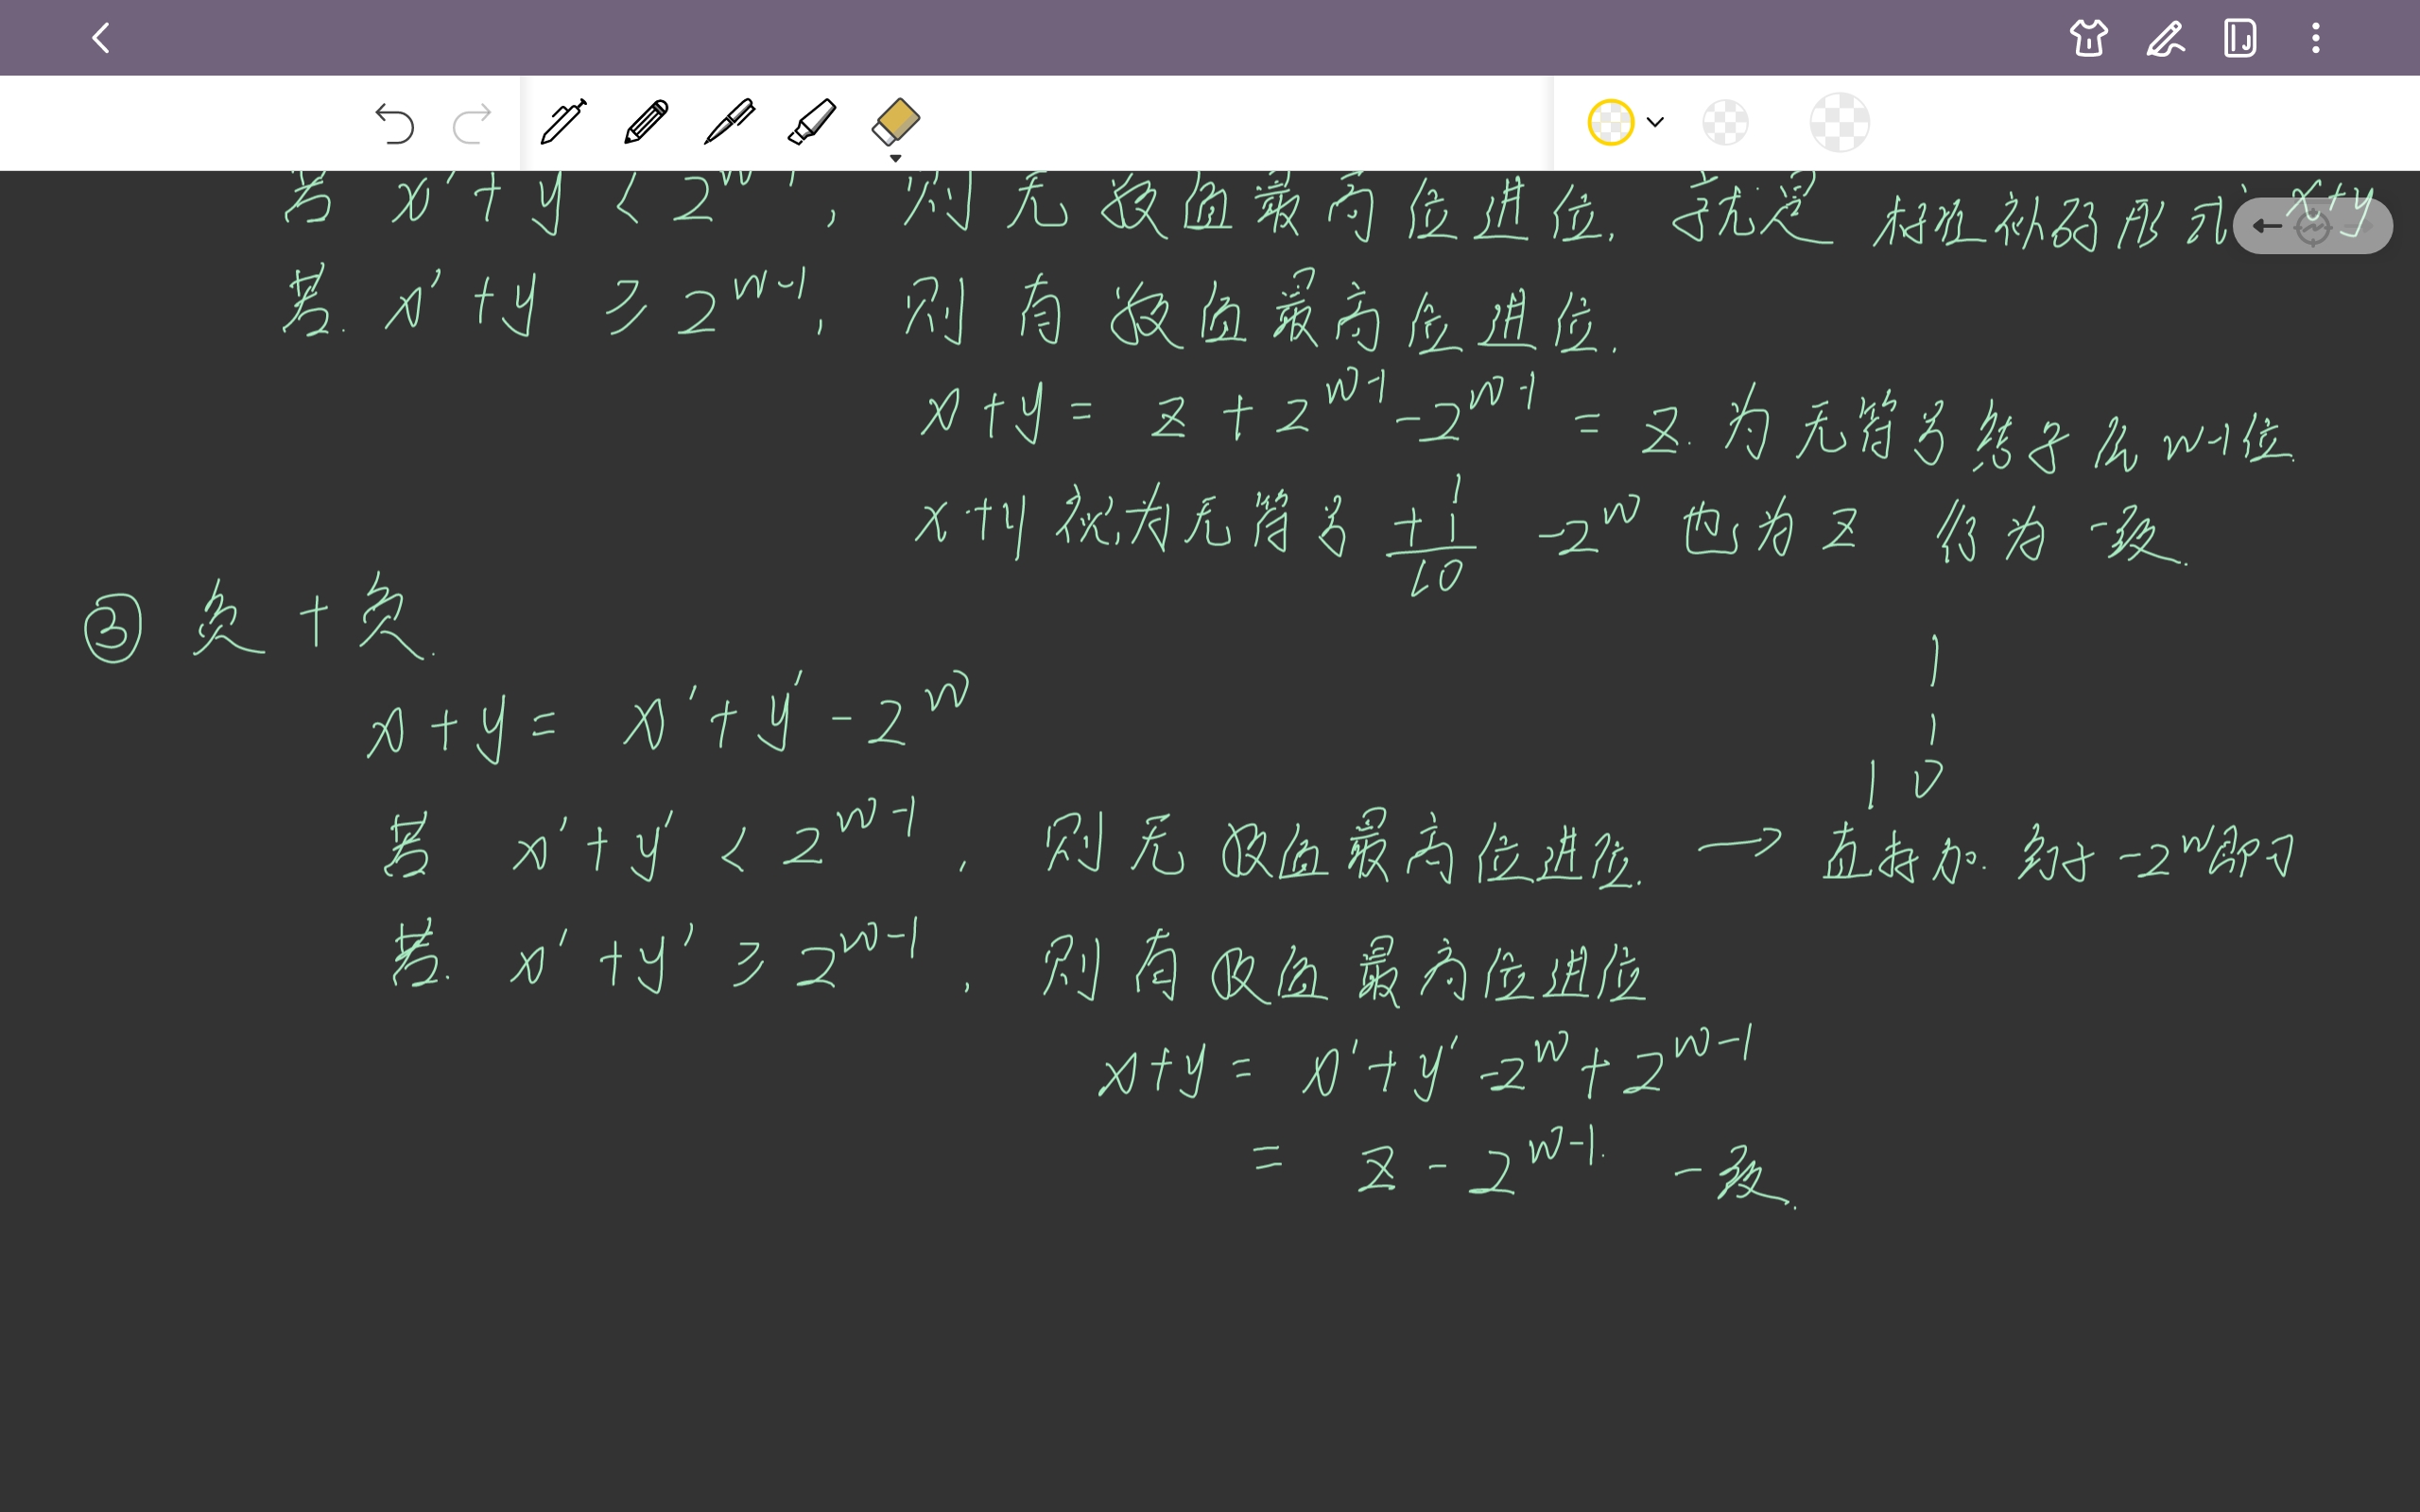 若 x'+y < 2^(w-1), 则无数值最高位进位. 无论 相位补码即可 x+y
若. x'+y ≥ 2^(w-1), 则有数值最高位进位.
x+y = z + 2^(w-1) - 2^(w-1) = z. 为无符号结果后w-1位
x+y 视为无符号 +1 1 10 -2^w 也为z 仍为一致.
③ 负+负.
x+y = x'+y'-2^w
1
1
10
若 x'+y' < 2^(w-1), 则无数值最高位进位. → 直接加. 多减-2^w即可
若. x'+y' ≥ 2^(w-1), 则有数值最高位进位
x+y = x'+y'-2^w+2^(w-1)
= z - 2^(w-1). 一致.